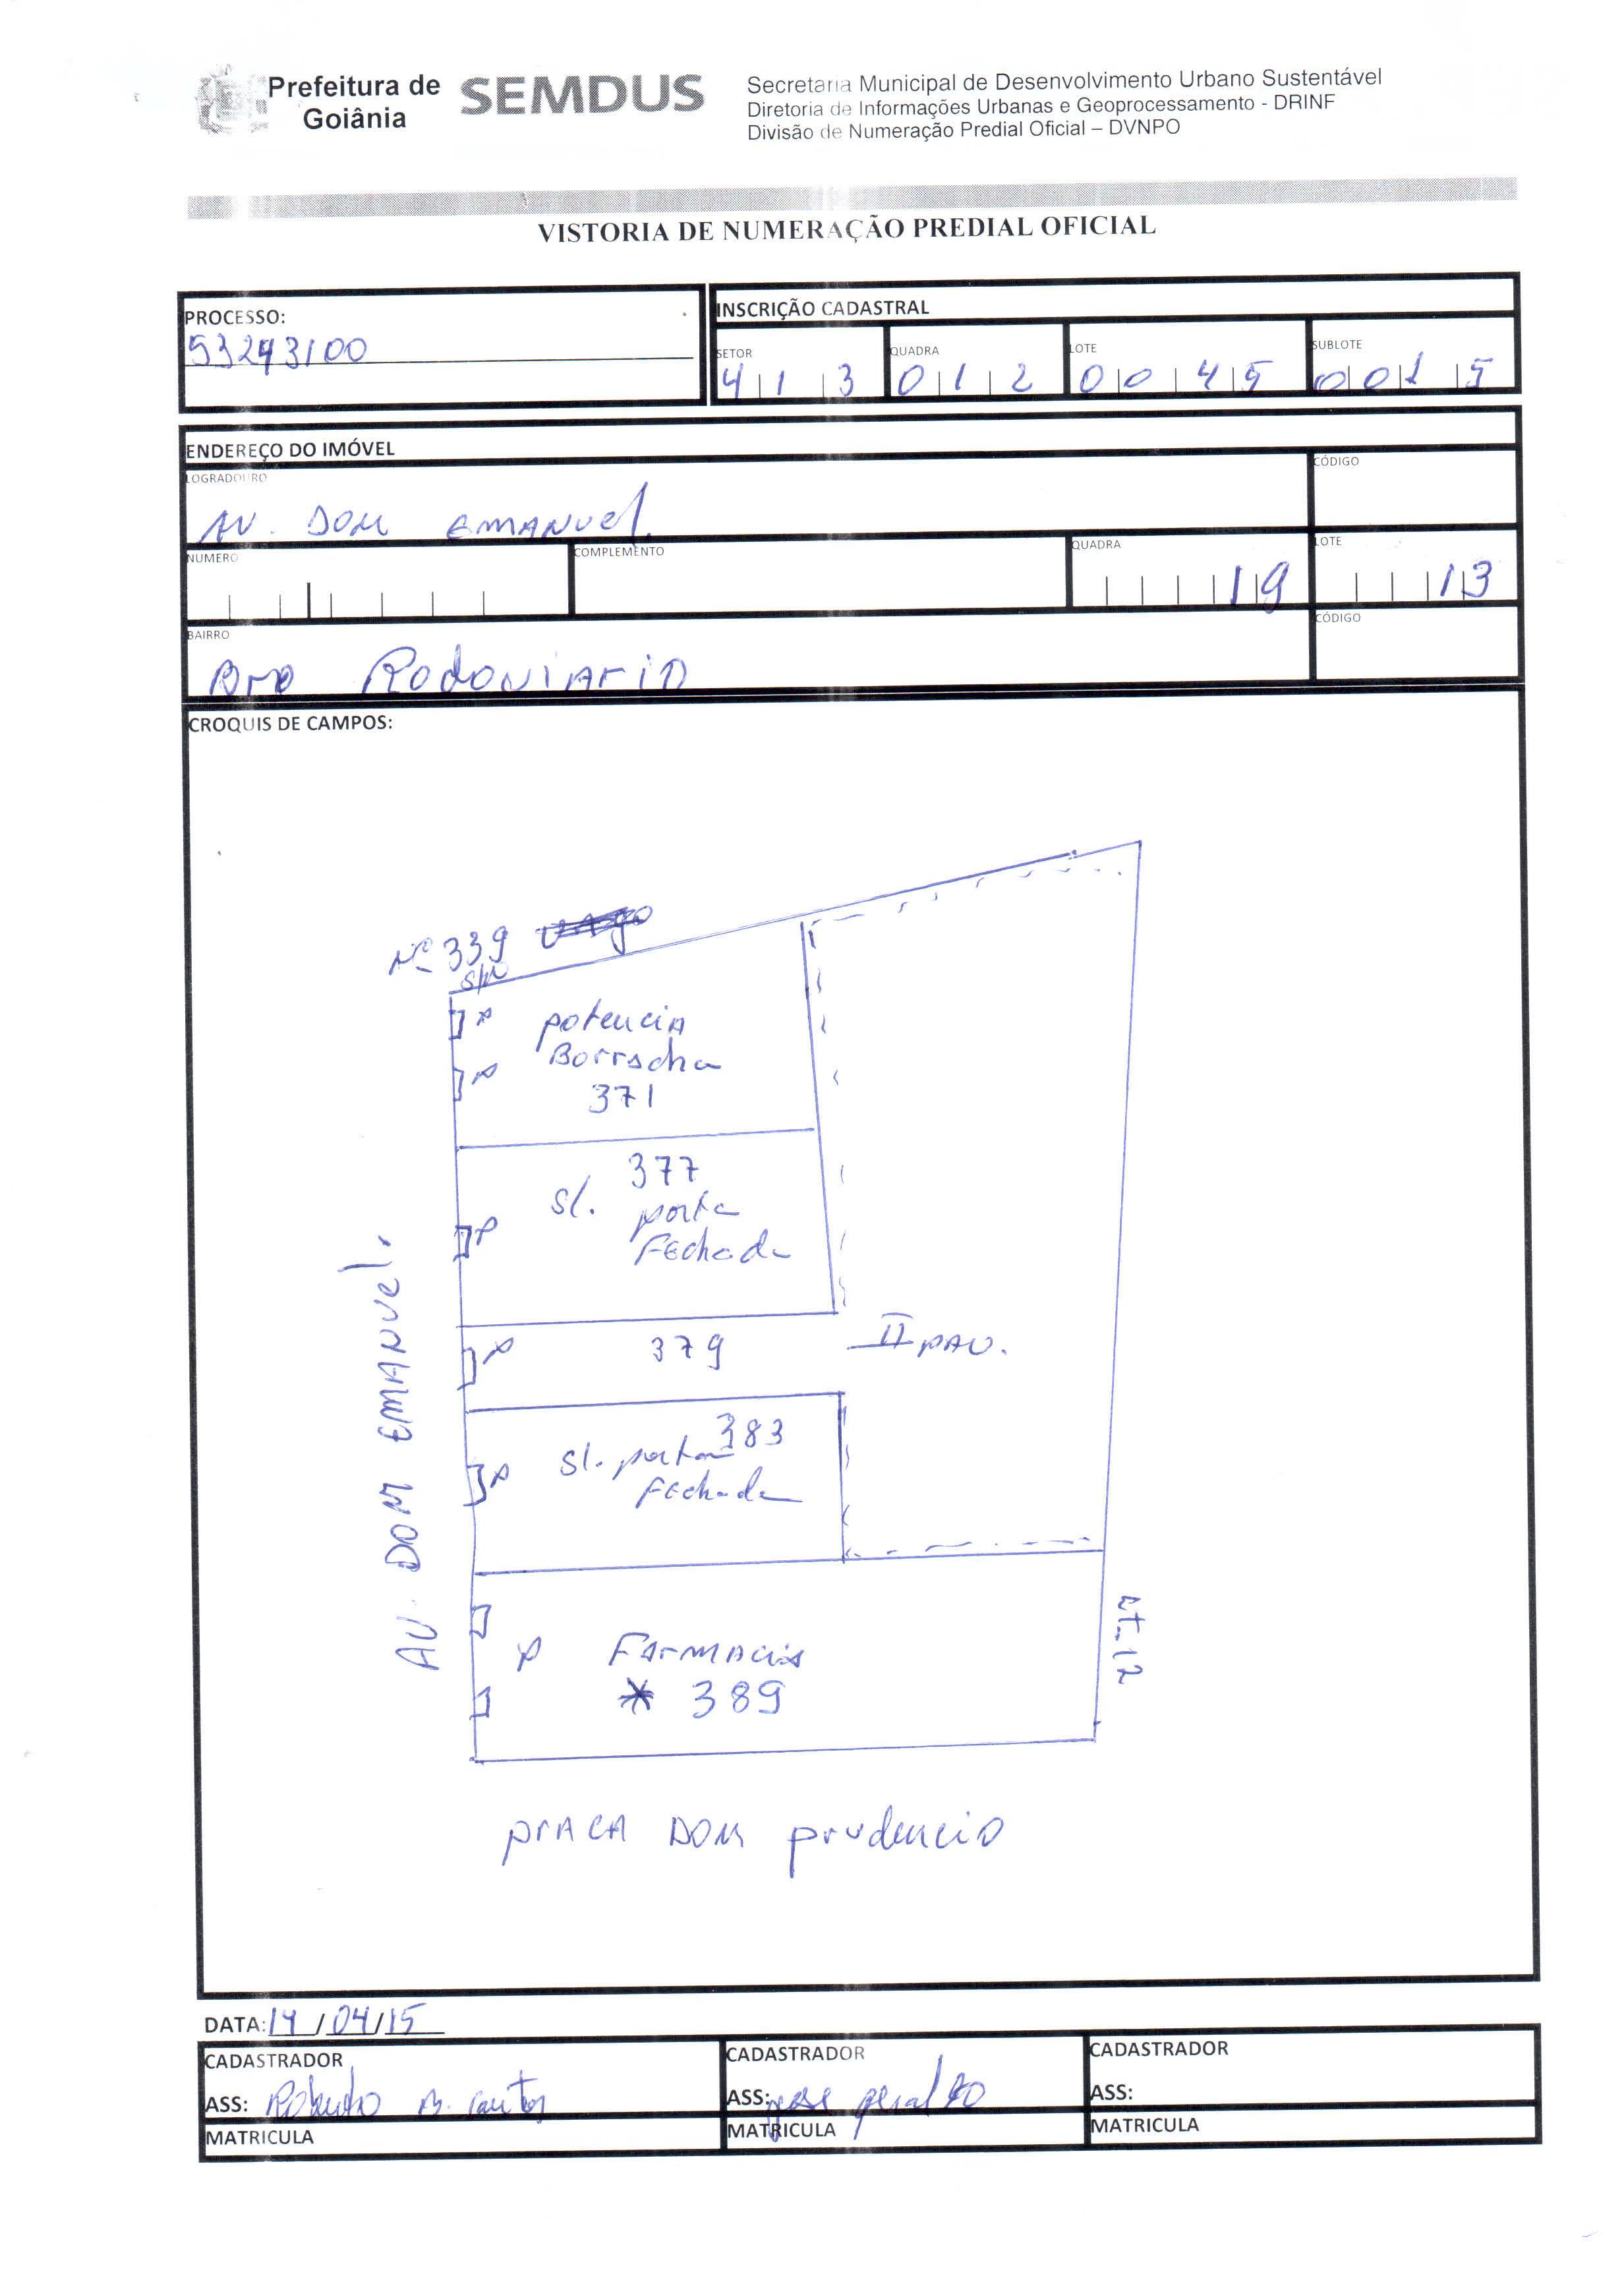 Prefeitura de Goiânia
SEMDUS
Secretaria Municipal de Desenvolvimento Urbano Sustentável
Diretoria de Informações Urbanas e Geoprocessamento - DRINF
Divisão de Numeração Predial Oficial – DVNPO
VISTORIA DE NUMERAÇÃO PREDIAL OFICIAL
PROCESSO:
53243100
INSCRIÇÃO CADASTRAL
SETOR QUADRA LOTE SUBLOTE
4 1 3 0 1 2 0 0 4 5 0 0 1 5
ENDEREÇO DO IMÓVEL
LOGRADOURO CÓDIGO
AV. DOM EMANUEL
NUMERO COMPLEMENTO QUADRA LOTE
19 13
BAIRRO CÓDIGO
Bro Rodoviario
CROQUIS DE CAMPOS:
Nº 339
S/N
P potencia
P Borracha
371
377
sl. porta
P Fechada
P 379 II PAV.
383
P sl. porta
Fechada
AV. DOM EMANUEL.
LT-12
P Farmacia
* 389
PRACA DOM prudencio
DATA: 14/04/15
CADASTRADOR CADASTRADOR CADASTRADOR
ASS: ASS: ASS:
MATRICULA MATRICULA MATRICULA